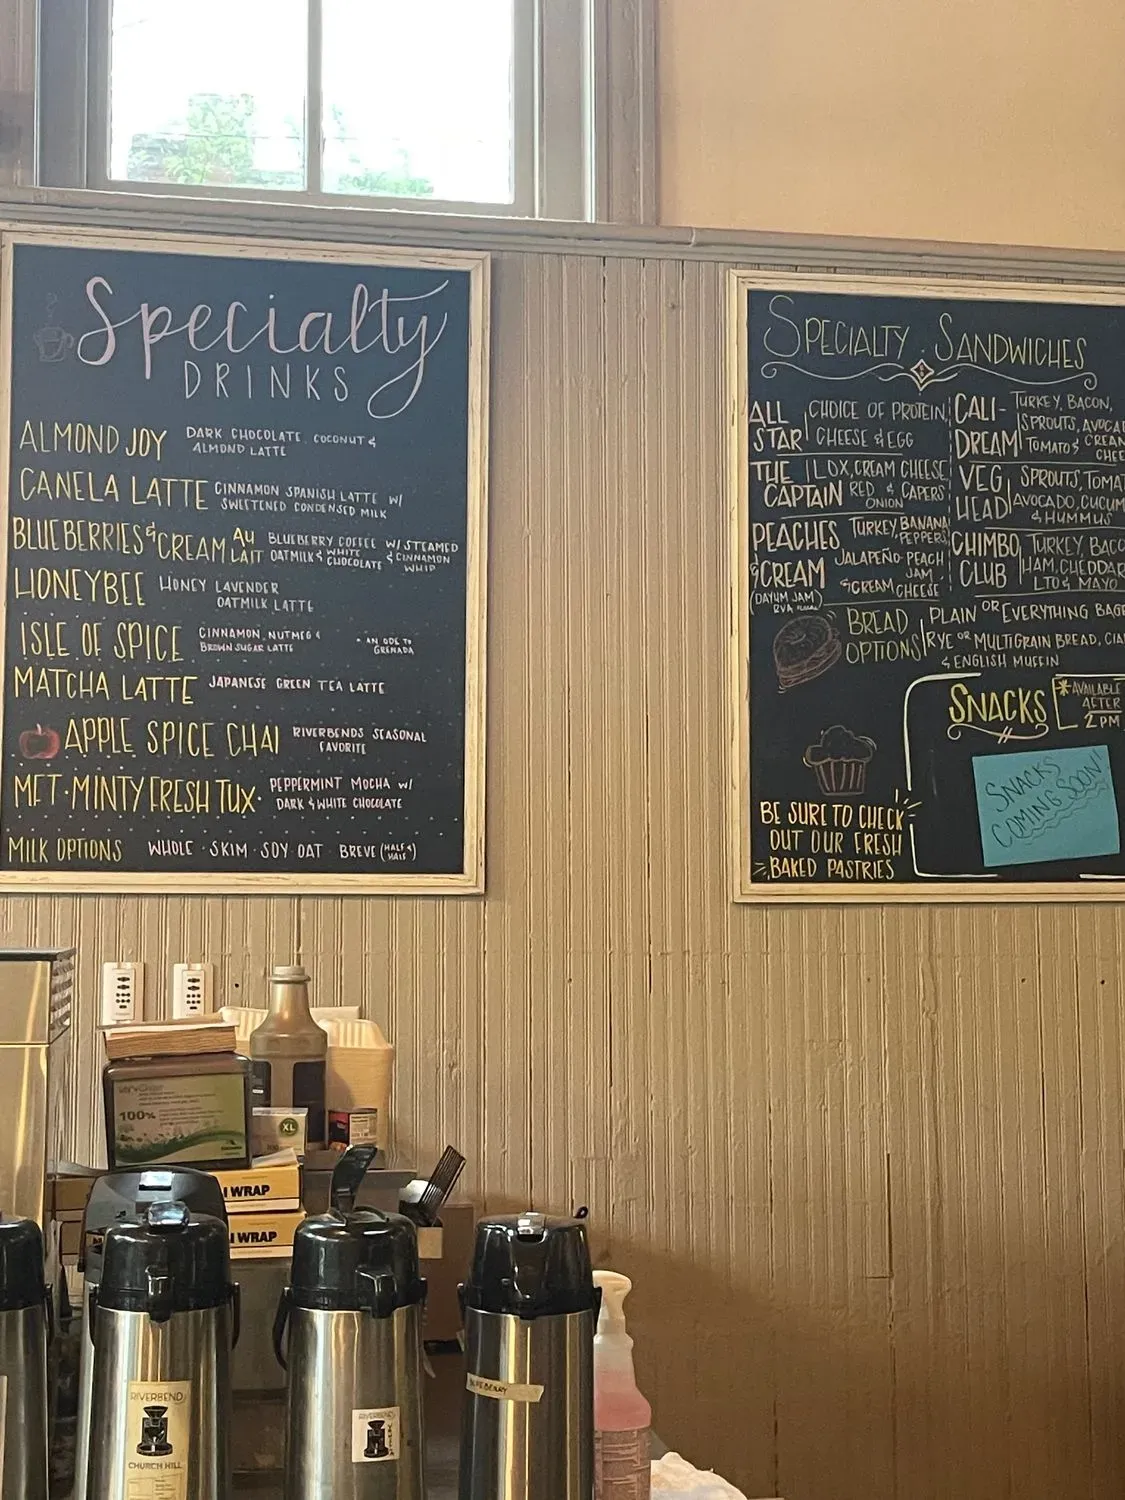 Specialty
DRINKS
ALMOND JOY DARK CHOCOLATE, COCONUT &
ALMOND LATTE
CANELA LATTE CINNAMON SPANISH LATTE W/
SWEETENED CONDENSED MILK
BLUEBERRIES & CREAM AU LAIT BLUEBERRY COFFEE W/ STEAMED
OATMILK & WHITE CHOCOLATE & CINNAMON WHIP
HONEYBEE HONEY LAVENDER
OATMILK LATTE
ISLE OF SPICE CINNAMON, NUTMEG &
BROWN SUGAR LATTE
• AN ODE TO
GRENADA
MATCHA LATTE JAPANESE GREEN TEA LATTE
APPLE SPICE CHAI RIVERBENDS SEASONAL
FAVORITE
MFT • MINTY FRESH TUX • PEPPERMINT MOCHA W/
DARK & WHITE CHOCOLATE
MILK OPTIONS WHOLE • SKIM • SOY • OAT • BREVE (HALF & HALF)
SPECIALTY SANDWICHES
ALL STAR CHOICE OF PROTEIN,
CHEESE & EGG
THE CAPTAIN LOX, CREAM CHEESE
RED ONION & CAPERS
PEACHES & CREAM TURKEY, BANANA PEPPERS,
JALAPEÑO-PEACH JAM
& CREAM CHEESE
(DAYUM JAM)
RVA
CALI-DREAM TURKEY, BACON,
SPROUTS,
TOMATO &
VEG HEAD SPROUTS,
AVOCADO,
& HUMMUS
CHIMBO CLUB TURKEY,
HAM, CHEDDAR
LTO & MAYO
BREAD OPTIONS PLAIN OR EVERYTHING
RYE OR MULTIGRAIN BREAD,
& ENGLISH MUFFIN
SNACKS
*AVAILABLE
AFTER
2PM
SNACKS
COMING SOON!
BE SURE TO CHECK
OUT OUR FRESH
BAKED PASTRIES
100%
XL
WRAP
WRAP
RIVERBEND
CHURCH HILL
RIVERBEND